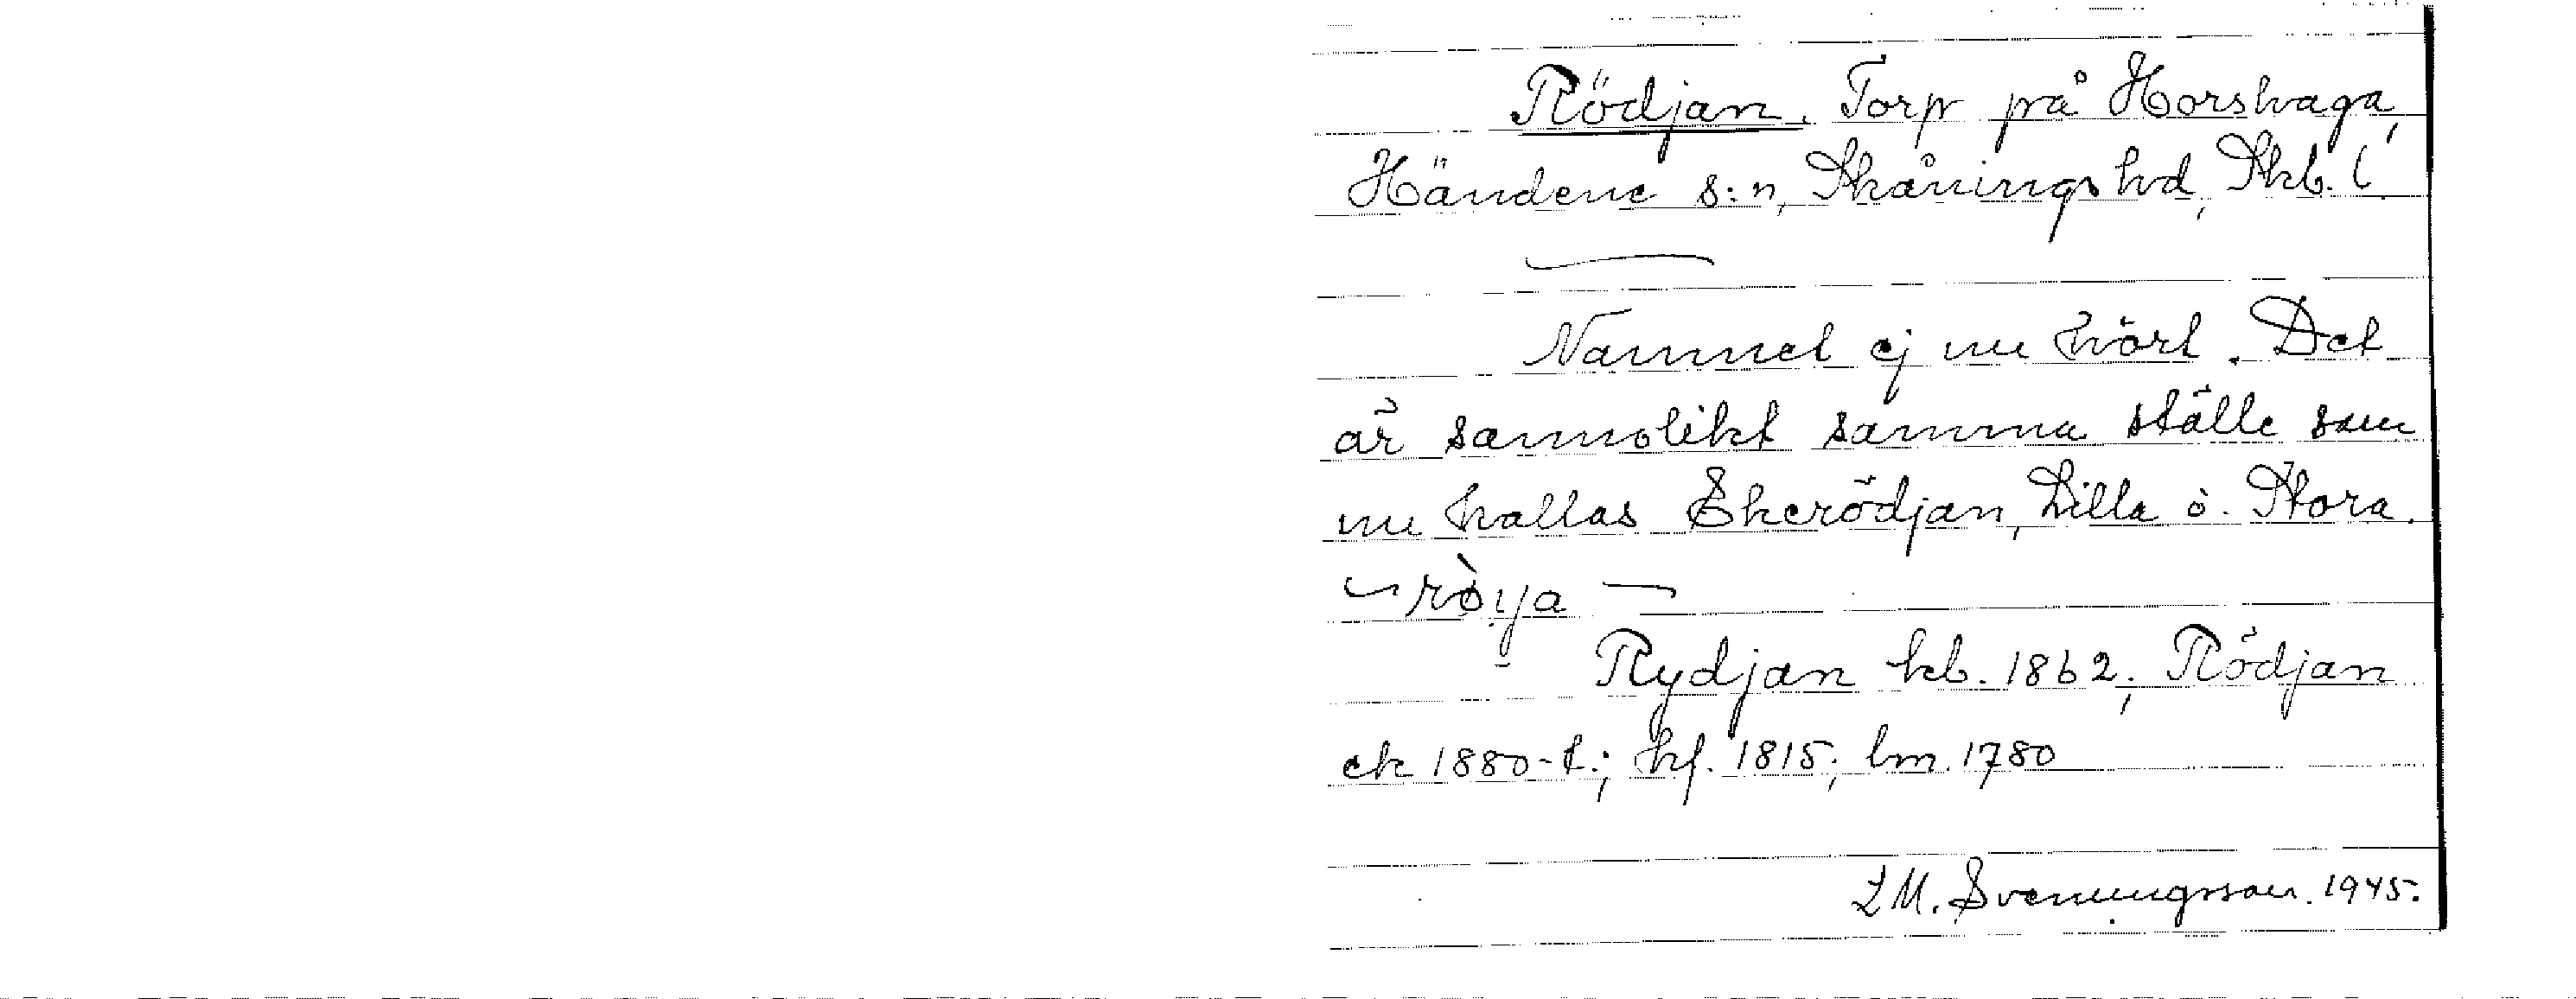 Rödjan. Torp på Horshaga,
Händene s:n, Skånings hd, Skb. l.
Namnet ej nu hört. Det
är sannolikt samma ställe som
nu kallas Ekerödjan, Lilla o. Stora.
Rydjan kb. 1862; Rödjan
ek 1880-t.; hf. 1815; lm. 1780
Z M. Svenungsson. 1945.